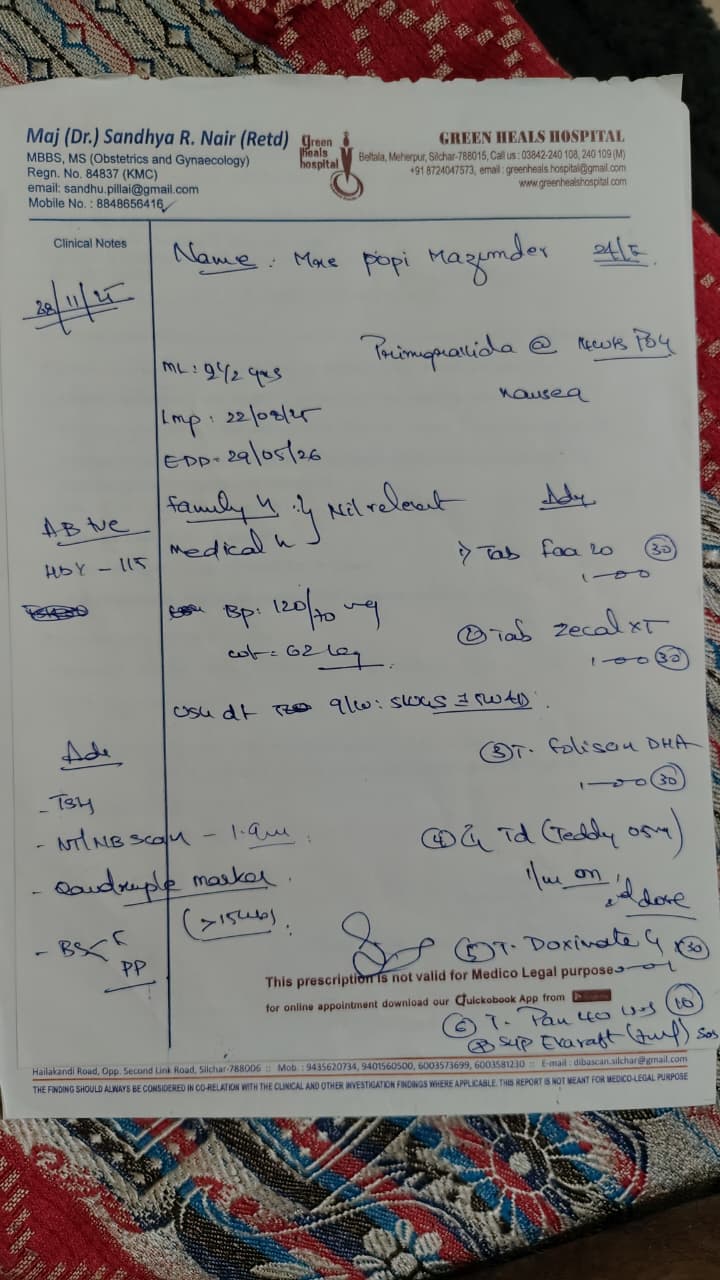 Maj (Dr.) Sandhya R. Nair (Retd)
MBBS, MS (Obstetrics and Gynaecology)
Regn. No. 84837 (KMC)
email: sandhu.pillai@gmail.com
Mobile No. : 8848656416
green heals hospital
GREEN HEALS HOSPITAL
Beltala, Meherpur, Silchar-788015, Call us : 03842-240 108, 240 109 (M)
+91 8724047573, email : greenheals.hospital@gmail.com
www.greenhealshospital.com
Clinical Notes
Name : Mrs popi Mazumder
28/11/25
Primigravida @ POG
nausea
ML : 2 1/2 yrs
Lmp : 22/08/25
EDD - 29/05/26
family h Nil relevant
Medical h
AB +ve
- 115
BP : 120/70
wt = 62 kg
9/w :
Adv
- TSH
- NT/NB Scan -
- Quadruple marker
- BS F
PP
Adv
1) Tab Faa 20 (30)
1-0-0
(2) Tab Zecal XT
1-0-0 (30)
(3) T. Folison DHA
1-0-0 (30)
(4) Td (Teddy
dose
(5) T. Doxinate
(6) T. Pan 40 (10)
SYP SOS
This prescription is not valid for Medico Legal purpose
for online appointment download our Quickobook App from
Hailakandi Road, Opp. Second Link Road, Silchar-788006 :: Mob. : 9435620734, 9401560500, 6003573699, 6003581230 :: E-mail : dibascan.silchar@gmail.com
THE FINDING SHOULD ALWAYS BE CONSIDERED IN CO-RELATION WITH THE CLINICAL AND OTHER INVESTIGATION FINDINGS WHERE APPLICABLE. THIS REPORT IS NOT MEANT FOR MEDICO-LEGAL PURPOSE